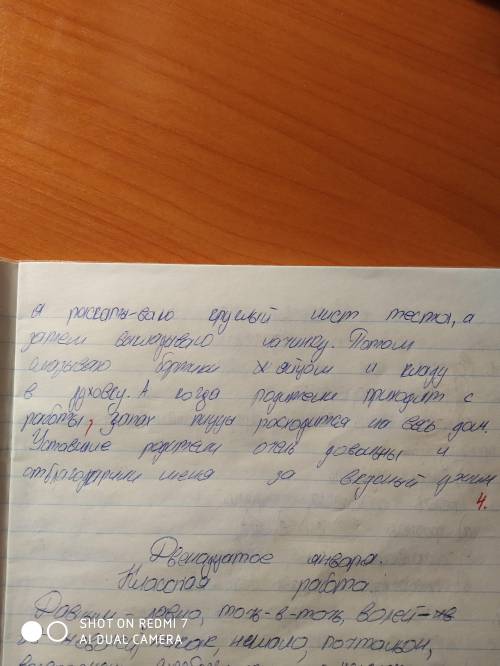 я раскаты-ваю круглый лист теста, а
затем выкладываю начинку. Потом
смазываю бортики яйцом и кладу
в духовку. А когда родители приходят с
работы, запах пиццы расходится на весь дом.
Уставшие родители очень довольны и
отблагодарили меня за вкусный ужин
4.
Двенадцатое января.
Классная работа
Давным-давно, точь-в-точь,
как, немало, почтальон,
SHOT ON REDMI 7
AI DUAL CAMERA